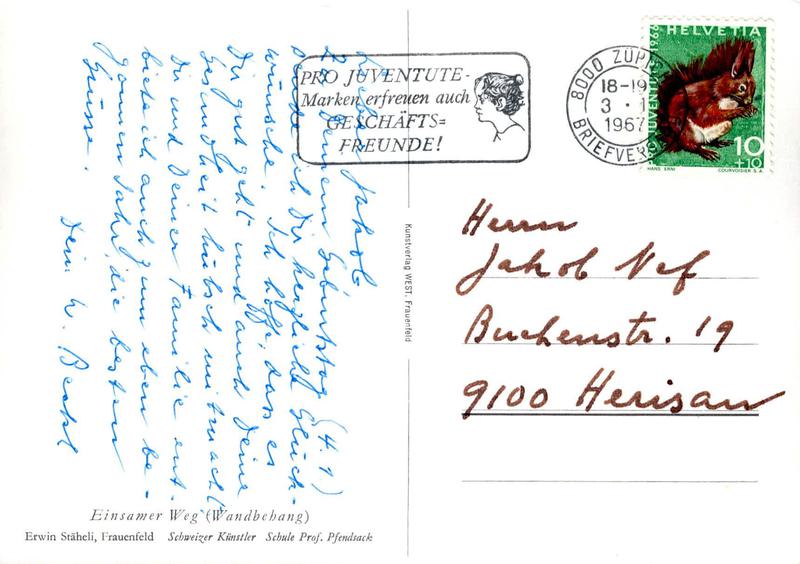 Lieber Jakob
Zu Deinem Geburtstag (4.1)
sende ich Dir herzliche Glück-
wünsche. Ich hoffe, dass es
Dir gut geht und auch Deine
Gesundheit hübsch mitmacht
Dir und Deiner Familie ent-
biete ich auch zum eben be-
gonnen Jahr, die besten
Grüsse.
Dein W.
PRO JUVENTUTE-
Marken erfreuen auch
GESCHÄFTS=
FREUNDE!
8000 ZÜRICH
18-19
3.1
1967
BRIEFVERSAND
HELVETIA
PRO JUVENTUTE 1966
10
+10
HANS ERNI COURVOISIER S.A.
Kunstverlag WEST. Frauenfeld
Herrn
Jakob Nef
Buchenstr. 19
9100 Herisau
Einsamer Weg (Wandbehang)
Erwin Stäheli, Frauenfeld Schweizer Künstler Schule Prof. Pfendsack